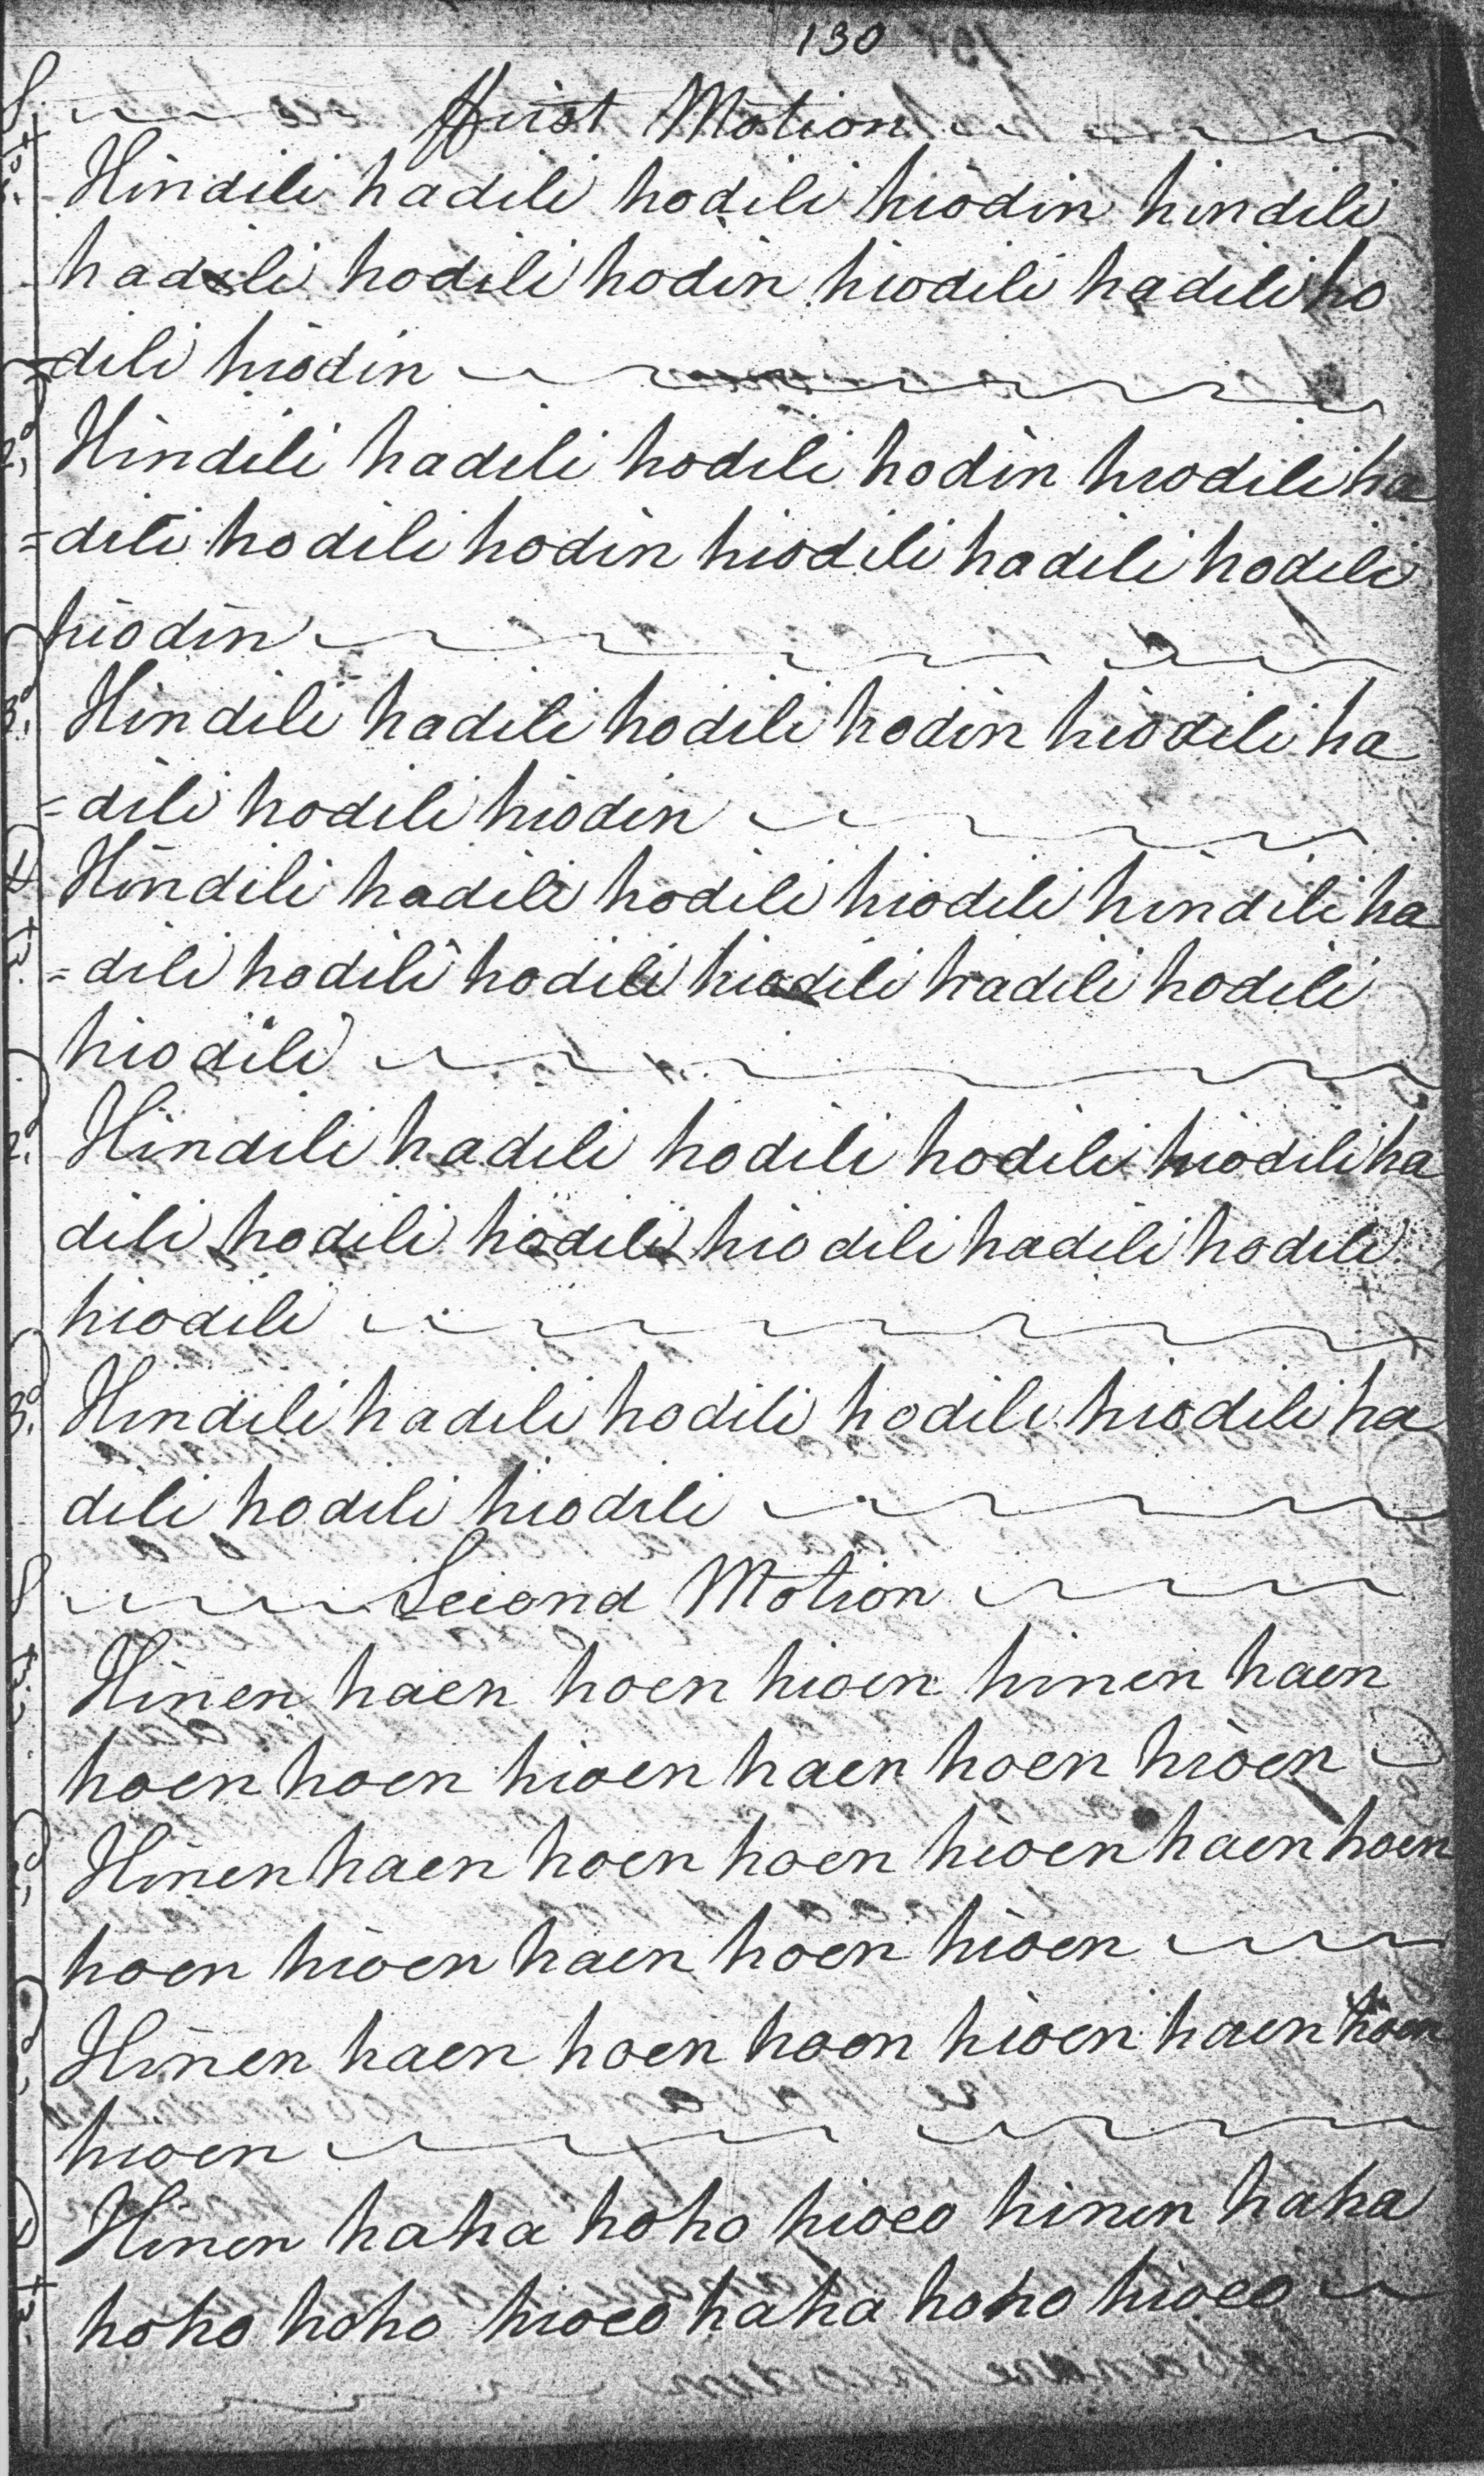 130
First Motion
Hindili hadili hodili hiodin hindili
hadili hodili hodin hiodili hadili ho
=dili hiodin
Hindili hadili hodili hodin hiodili ha
=dili hodili hodin hiodili hadili hodili
hiodin
Hindili hadili hodili hodin hiodili ha
=dili hodili hiodin
Hindili hadili hodili hiodili hindili ha
=dili hodili hodili hiodili hadili hodili
hiodili
Hindili hadili hodili hodili hiodili ha
dili hodili hodili hiodili hadili hodili
hiodili
Hindili hadili hodili hodili hiodili ha
dili hodili hiodili
Second Motion
Hinen haen hoen hioen hinen haen
hoen hoen hioen haen hoen hioen
Hinen haen hoen hoen hioen haen hoen
hoen hioen haen hoen hioen
Hinen haen hoen hoen hioen haen hoen
hioen
Hinen haha hoho hioeo hinen haha
hoho hoho hioeo haha hoho hioeo